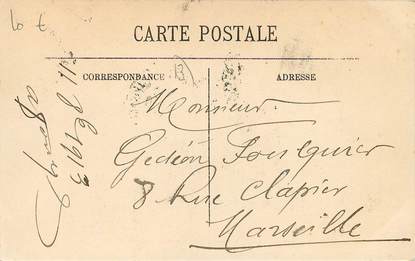 10 €
CARTE POSTALE
CORRESPONDANCE
ADRESSE
Monsieur
Gedéon Fourquier
8 Rue Clapier
Marseille